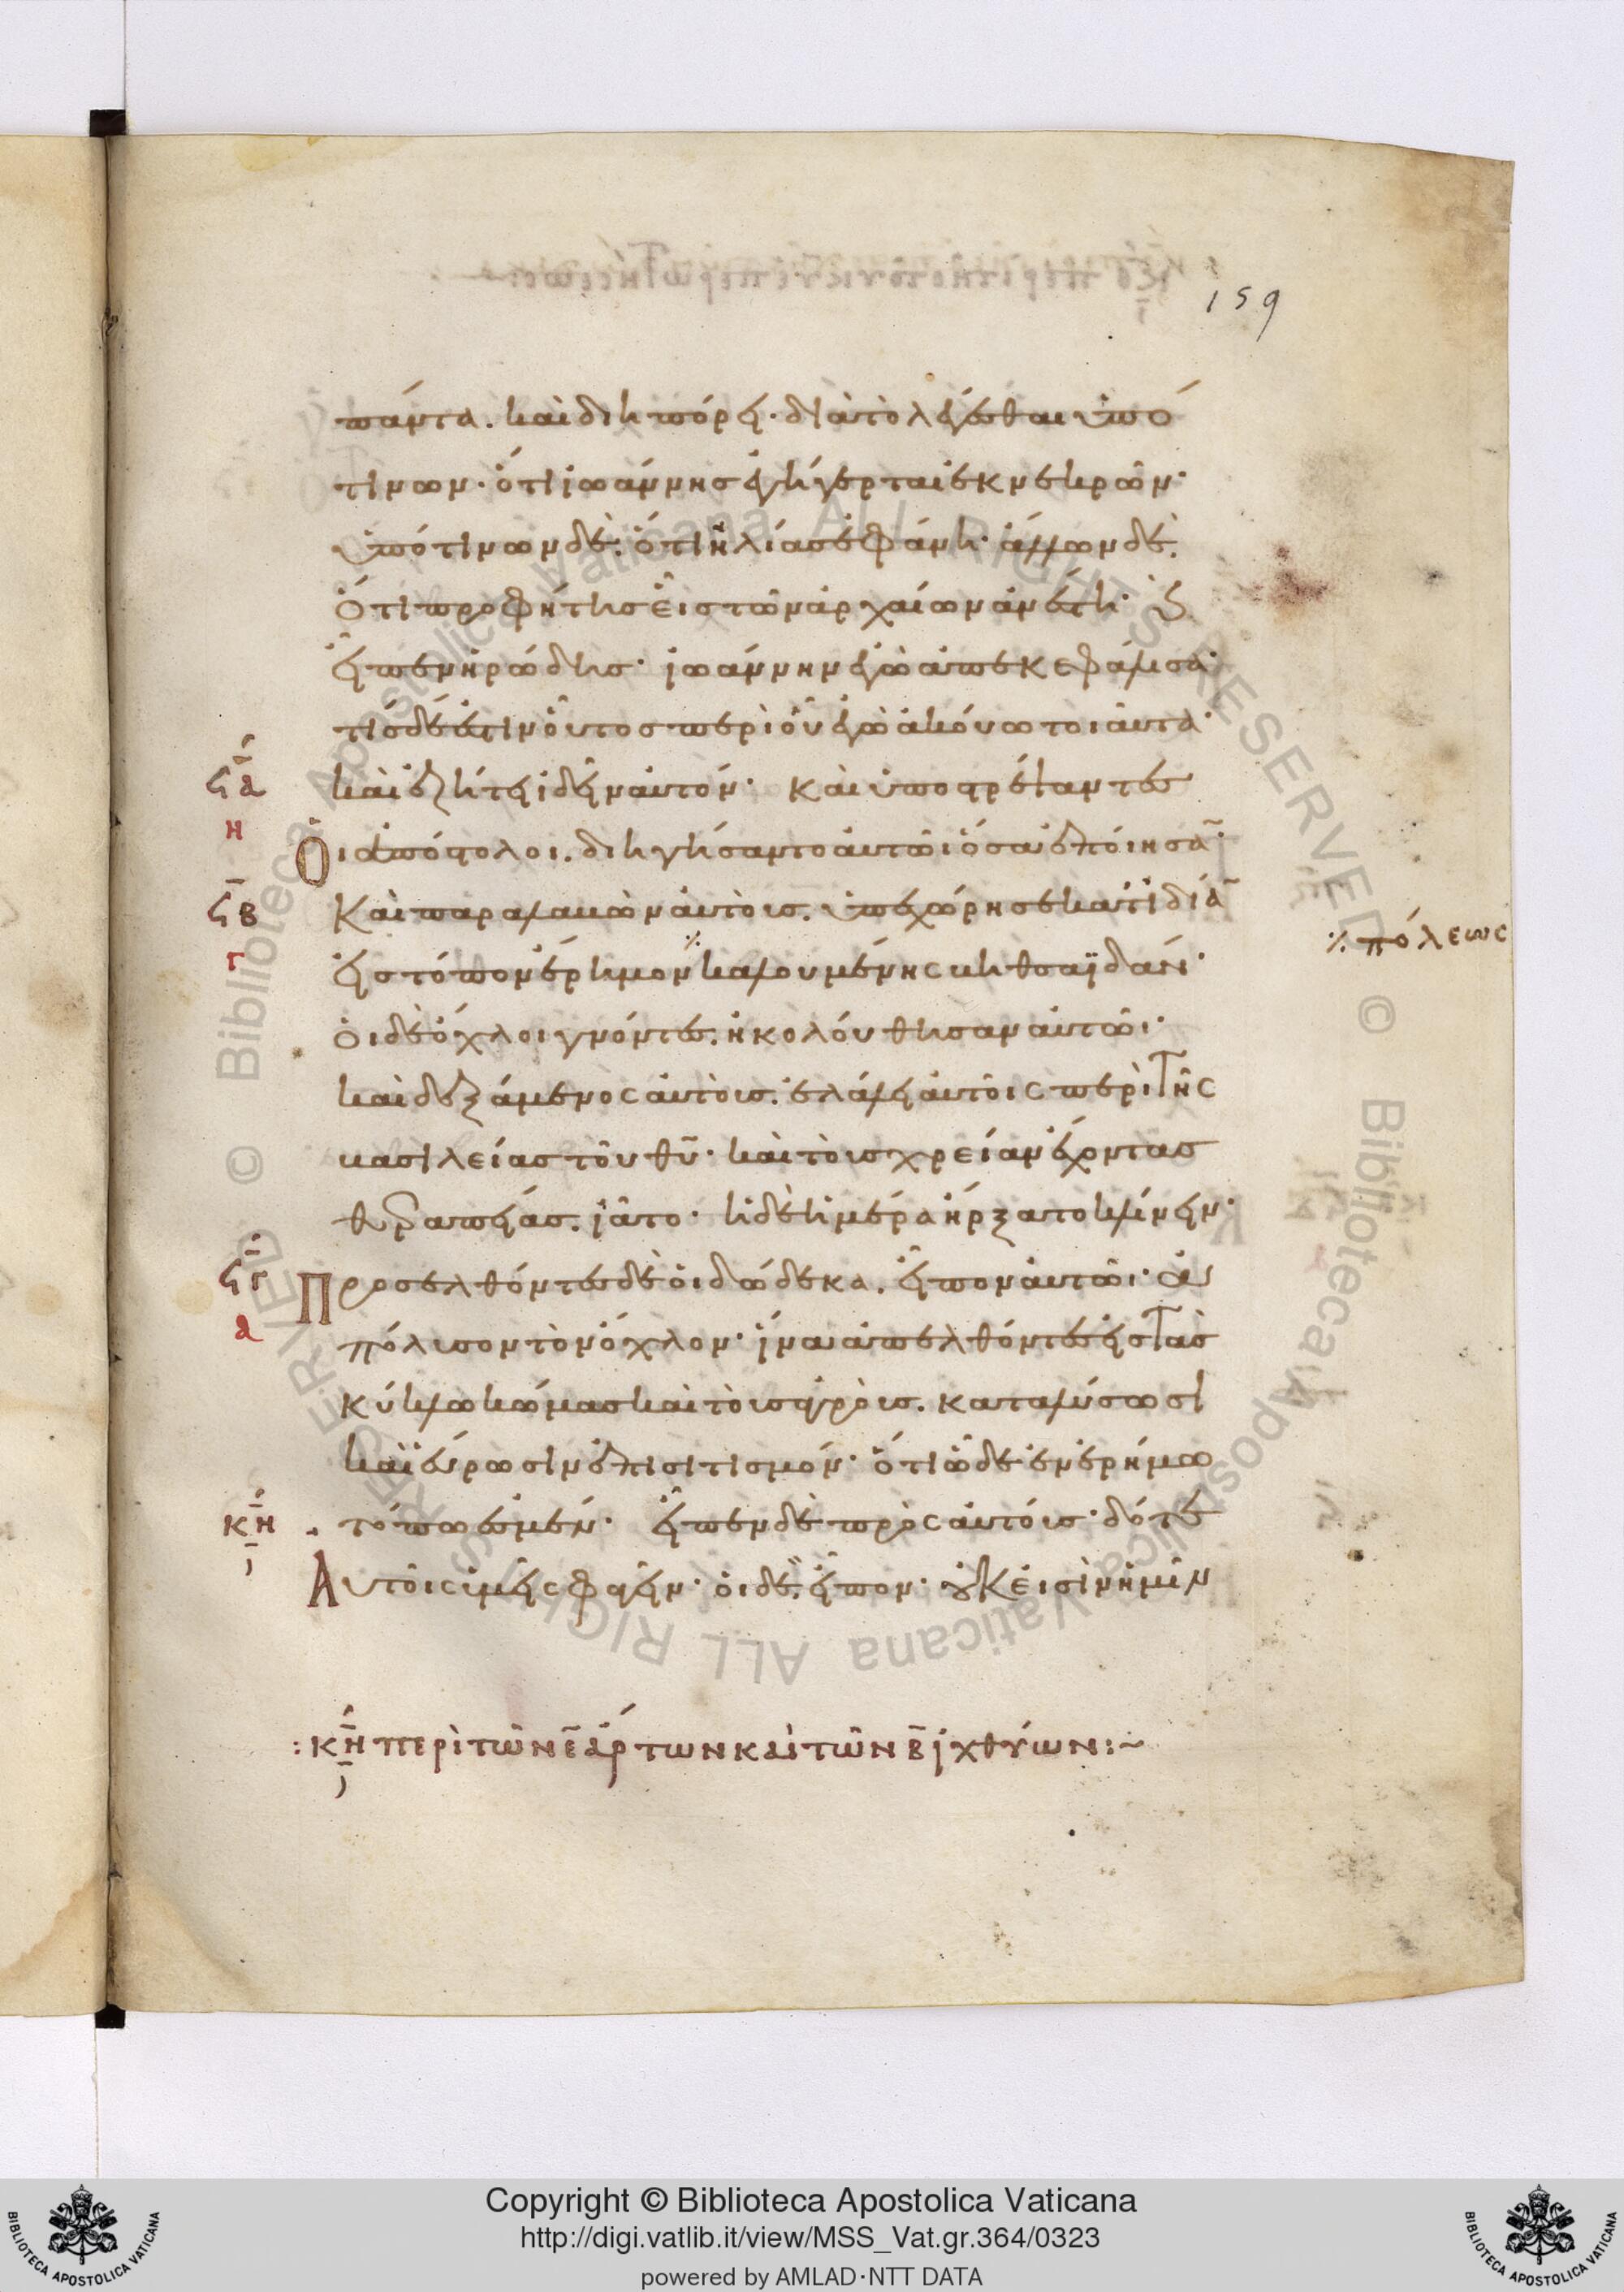 159
πάντα. καὶ διηπόρει· διὰ τὸ λέγεσθαι ὑπό
τινων· ὅτι ἰωάννης ἐγήγερται ἐκ νεκρῶν·
ὑπό τινων δὲ. ὅτι ἠλίας ἐφάνη· ἄλλων δὲ.
ὅτι προφήτης εἷς τῶν ἀρχαίων ἀνέστη· ϗ
εἶπεν ἡρώδης· ἰωάννην ἐγὼ ἀπεκεφάλισα·
τίς δέ ἐστιν οὗτος περὶ οὗ ἐγὼ ἀκούω τοιαῦτα·
ϛα καὶ ἐζήτει ἰδεῖν αὐτόν· καὶ ὑποστρέψαντες
η
οι ἀπόστολοι. διηγήσαντο αὐτῶι ὅσα ἐποίησᾱ·
ϛβ καὶ παραλαβὼν αὐτοὺς. ὑπεχώρησε κατ ἰδίᾱ
γ
⁒ πόλεως
εἰς τόπον ἔρημον ⁒ καλουμένης βηθσαϊδάν·
ὁι δὲ ὄχλοι γνόντες. ἠκολούθησαν αὐτῶι·
καὶ δεξάμενος αὐτοὺς. ἐλάλει αὐτοῖς περὶ τῆς
βασιλείας τοῦ θ̄ῡ· καὶ τοὺς χρείαν ἔχοντας
θεραπείας. ἰᾶτο· ἡ δὲ ἡμέρα ἤρξατο κλίνειν·
ϛγ Προσελθόντες δὲ ὁι δώδεκα. εἶπον αὐτῶι· ἀ
α
πόλυσον τὸν ὄχλον· ἵνα ἀπελθόντες εἰς τὰς
κύκλω κώμας καὶ τοὺς ἀγροὺς. καταλύσωσι
καὶ εὕρωσιν ἐπισιτισμόν· ὅτι ὧδε ἐν ἐρήμω
κη τόπω ἐσμέν· εἶπεν δὲ πρὸς αὐτούς· δότε
Αυτοῖς ὑμεῖς φαγεῖν· ὁι δὲ. εἶπον· οὐκ εἰσὶν ἡμῖν
: κη περὶ τῶν ε̄ ἄρτων καὶ τῶν β̄ ἰχθύων :~
Copyright © Biblioteca Apostolica Vaticana
http://digi.vatlib.it/view/MSS_Vat.gr.364/0323
powered by AMLAD·NTT DATA
BIBLIOTECA APOSTOLICA VATICANA
BIBLIOTECA APOSTOLICA VATICANA